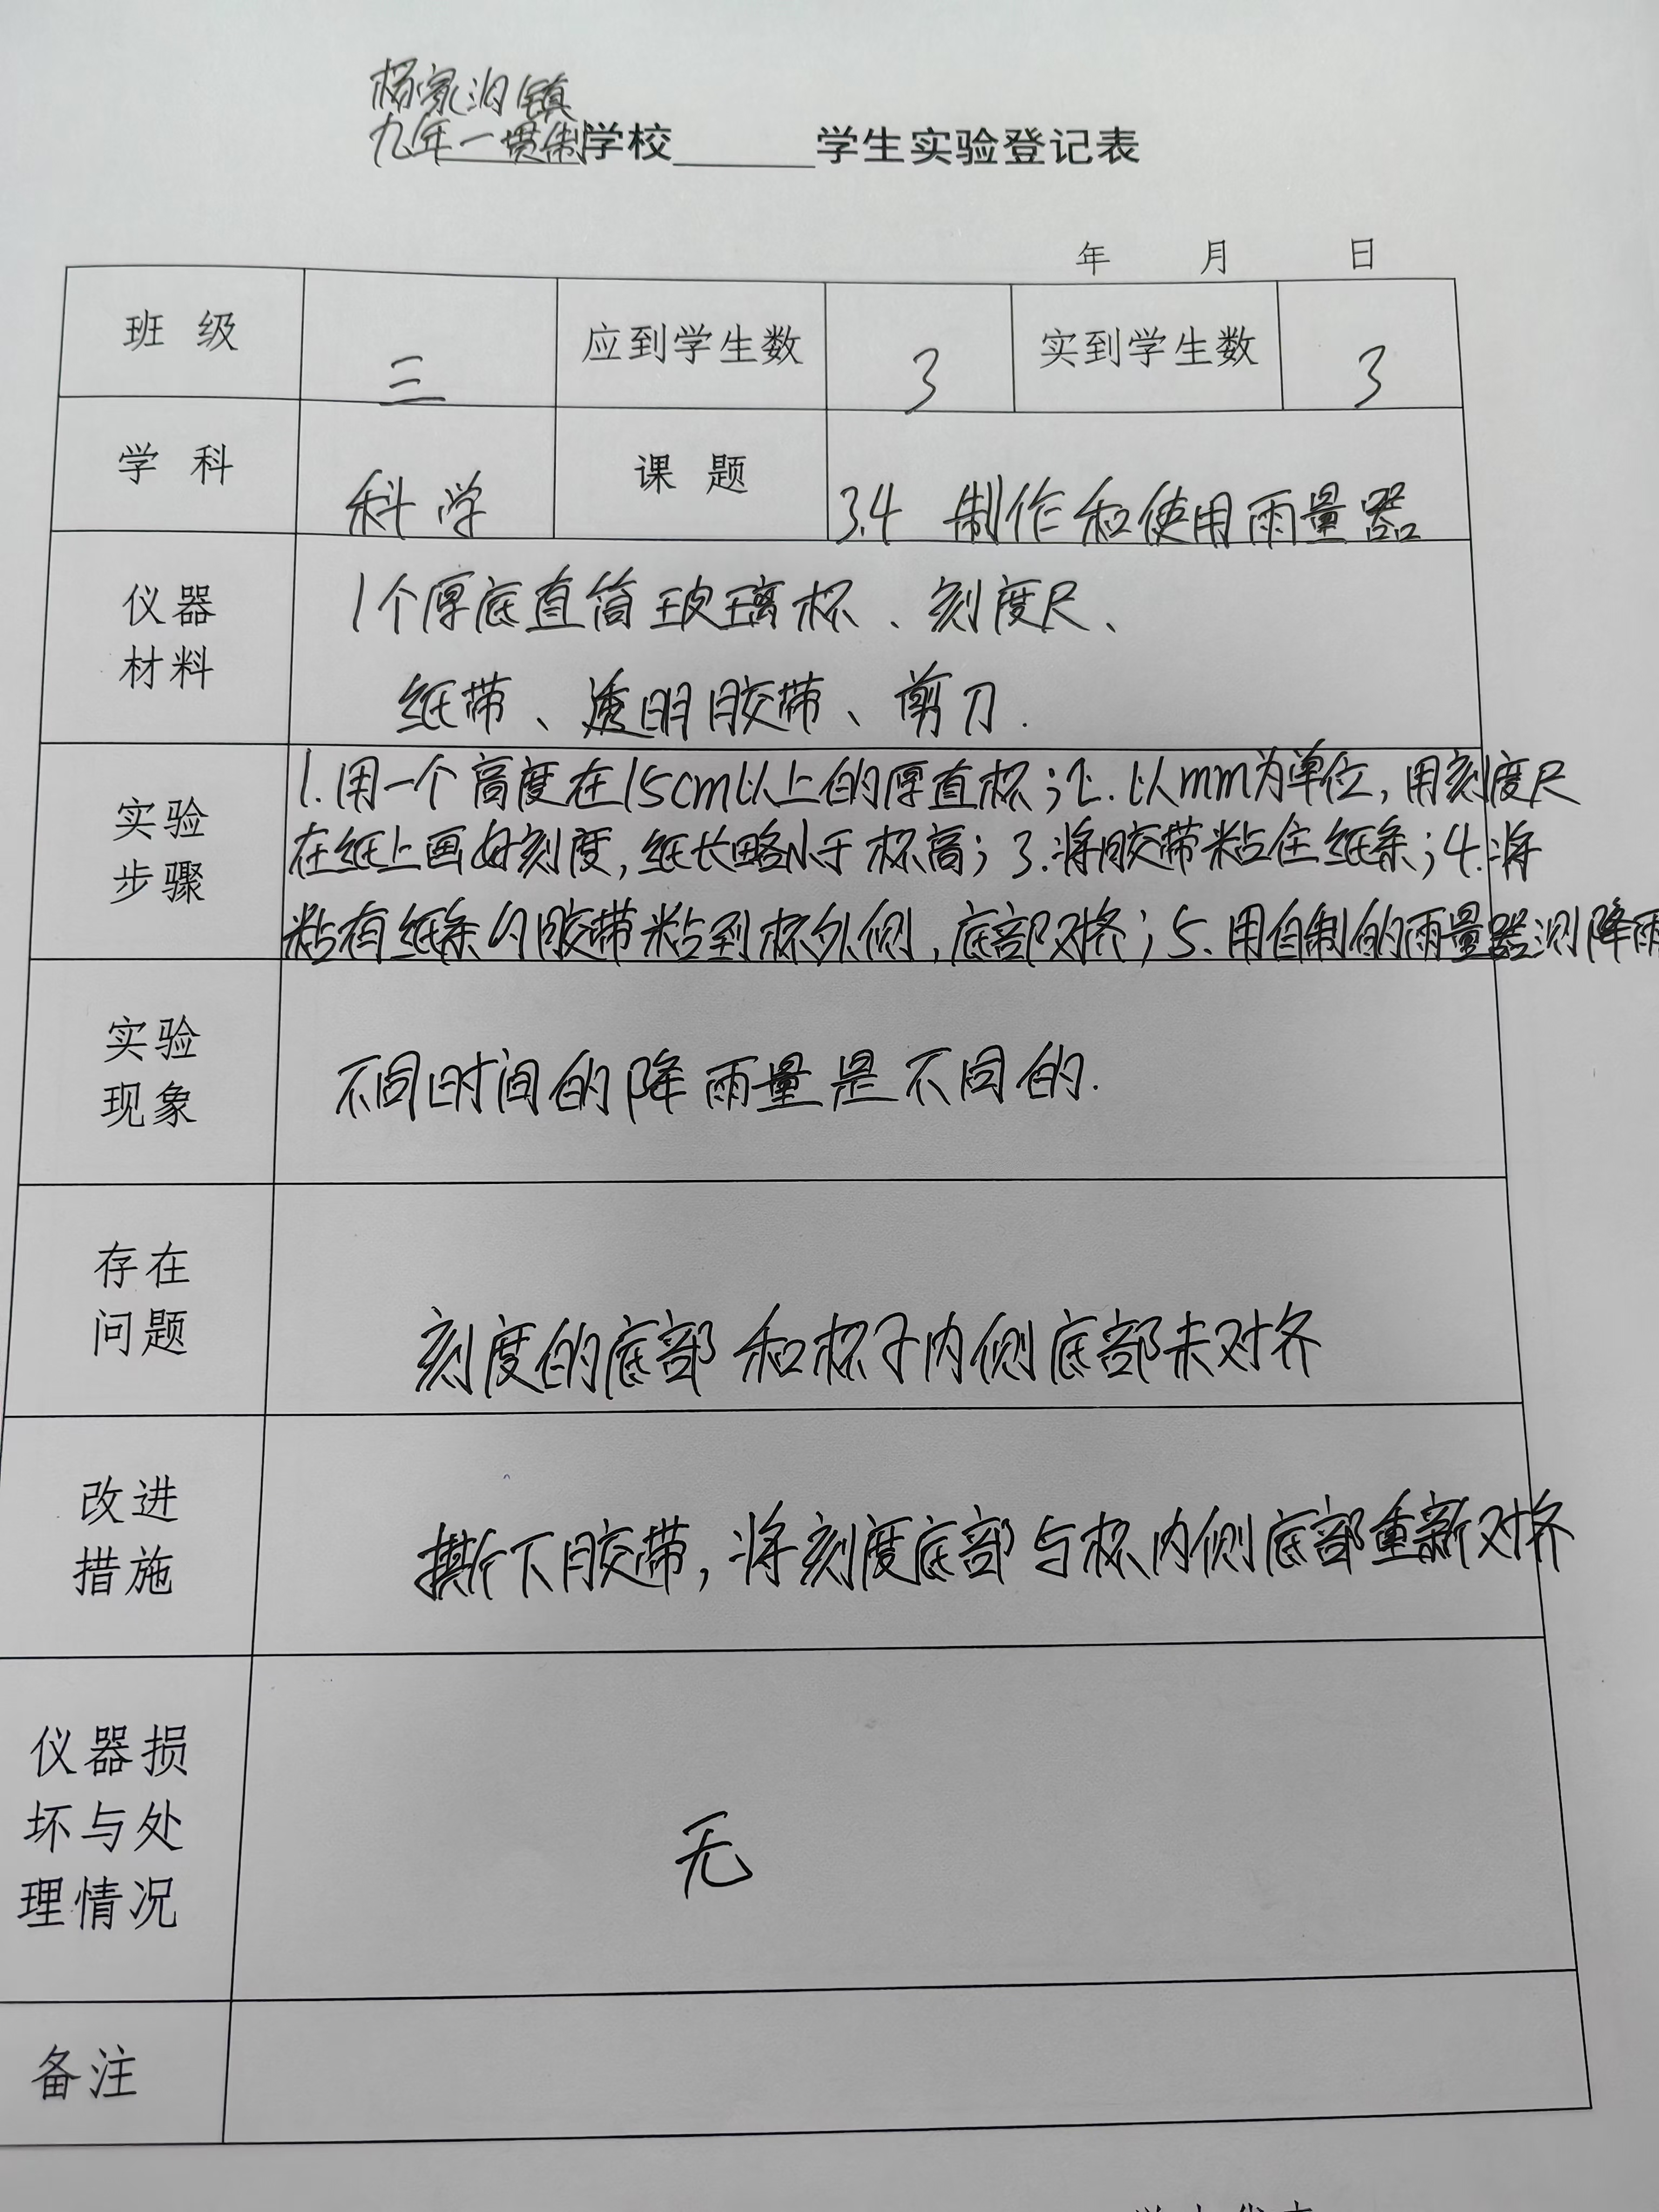 杨家泊镇
九年一贯制学校 学生实验登记表
年 月 日
班级 三 应到学生数 3 实到学生数 3
学科 科学 课题 3.4 制作和使用雨量器
仪器
材料
1个厚底直筒玻璃杯、刻度尺、
纸带、透明胶带、剪刀.
实验
步骤
1.用一个高度在15cm以上的厚直杯;2.以mm为单位,用刻度尺
在纸上画好刻度,纸长略小于杯高;3.将胶带粘住纸条;4.将
粘有纸条的胶带粘到杯外侧,底部对齐;5.用自制的雨量器测降雨
实验
现象
不同时间的降雨量是不同的.
存在
问题
刻度的底部和杯子内侧底部未对齐
改进
措施
撕下胶带,将刻度底部与杯内侧底部重新对齐
仪器损
坏与处
理情况
无
备注